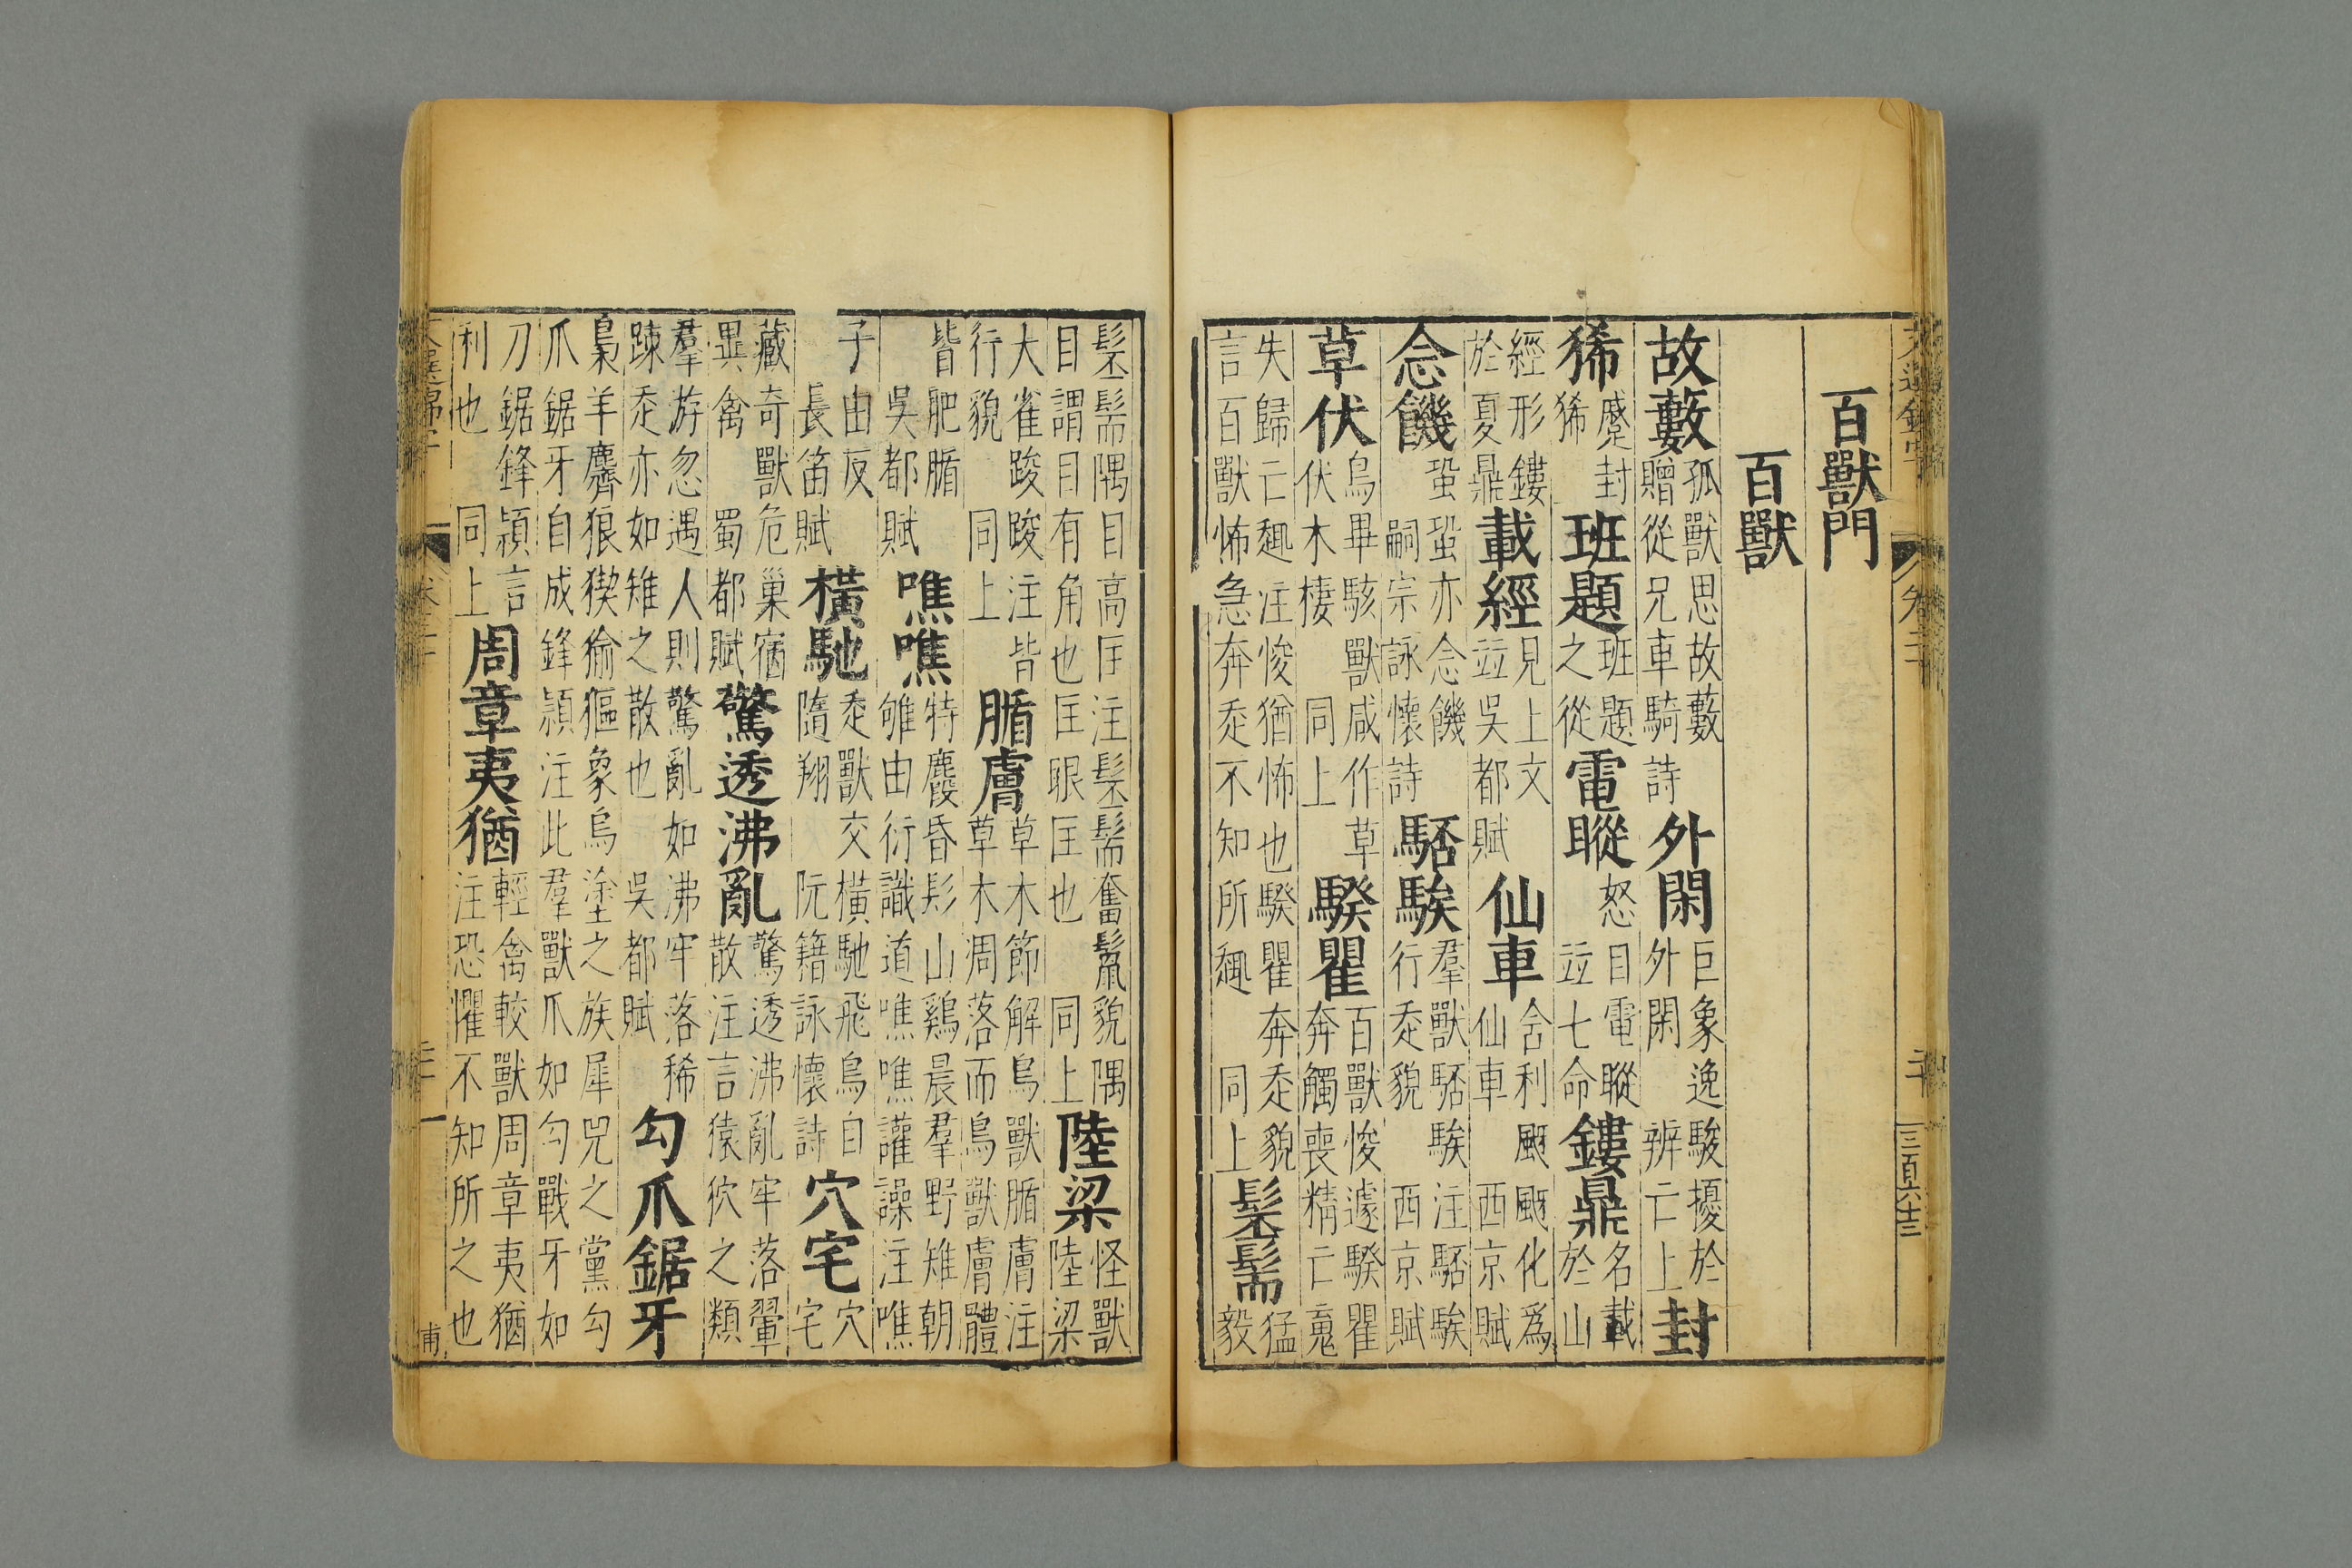 文選錦字 卷二十 二十 三百六十三
百獸門
百獸
故藪孤獸思故藪贈從兄車騎詩外閑巨象逸駿擾於外閑 辨亡上封
狶蹙封狶班題班題之從電瞛怒目電瞛並七命鏤鼎名載於山
經形鏤於夏鼎載經見上文並吳都賦仙車舍利颬颬化爲仙車 西京賦
念饑蛩蛩亦念饑嗣宗詠懷詩駓騃羣獸駓騃注駓騃行走貌 西京賦
草伏鳥畢駭獸咸作草伏木棲 同上騤瞿百獸㥄遽騤瞿奔觸喪精亡䰟
失歸亡趣注㥄猶怖也騤瞿奔走貌言百獸怖急奔走不知所趣 同上髬髵猛毅
髬髵隅目高匡注髬髵奮鬣貌隅目謂目有角也匡眼匡也 同上陸梁怪獸陸梁
大雀踆踆注皆行貌 同上腯膚草木節解鳥獸腯膚注草木凋落而鳥獸膚體
皆肥腯 吳都賦噍噍特麚昏髟山鷄晨羣野雉朝雊由衍識道噍噍讙譟注噍
子由反 長笛賦橫馳走獸交橫馳飛鳥自隨翔 阮籍詠懷詩穴宅穴宅
藏奇獸危巢宿異禽 蜀都賦驚透沸亂驚透沸亂牢落翬散注言猿狖之類
羣游忽遇人則驚亂如沸牢落稀踈走亦如雉之散也 吳都賦勾爪鋸牙
梟羊麡狼猰㺄貙象烏塗之族犀兕之黨勾爪鋸牙自成鋒穎注此羣獸爪如勾戰牙如
刀鋸鋒穎言利也 同上周章夷猶輕禽較獸周章夷猶注恐懼不知所之也